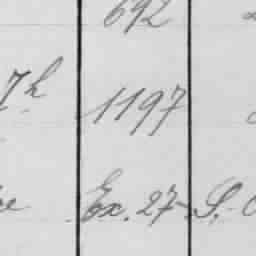 692
7h 1197
Ex. 27 S.